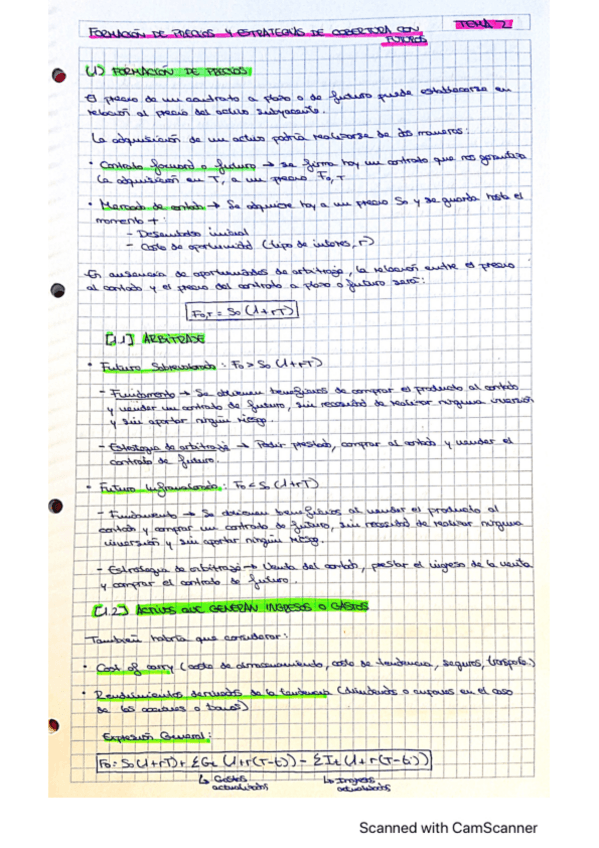 FORMACIÓN DE PRECIOS Y ESTRATEGIAS DE COBERTURA CON
FUTUROS
TEMA 2
(1) FORMACIÓN DE PRECIOS
El precio de un contrato a plazo o de futuro puede establecerse en
relación al precio del activo subyacente.
La adquisición de un activo podría realizarse de dos maneras:
• Contrato forward o futuro → se firma hoy un contrato que nos garantiza
la adquisición en T, a un precio F0,T
• Mercado de contado → Se adquiere hoy a un precio S0 y se guarda hasta el
momento t:
- Desembolso inicial
- Coste de oportunidad (tipo de interés, r)
En ausencia de oportunidades de arbitraje, la relación entre el precio
al contado y el precio del contrato a plazo o futuro será:
F0,T = S0 (1+rT)
[1.1] ARBITRAJE
• Futuro Sobrevalorado: F0 > S0 (1+rT)
- Fundamento → Se obtienen beneficios de comprar el producto al contado
y vender un contrato de futuro, sin necesidad de realizar ninguna inversión
y sin aportar ningún riesgo.
- Estrategia de arbitraje → Pedir prestado, comprar al contado y vender el
contrato de futuro.
• Futuro Infravalorado: F0 < S0 (1+rT)
- Fundamento → Se obtienen beneficios al vender el producto al
contado y comprar un contrato de futuro, sin necesidad de realizar ninguna
inversión y sin aportar ningún riesgo.
- Estrategia de arbitraje → Venta del contado, prestar el ingreso de la venta
y comprar el contrato de futuro.
[1.2] ACTIVOS QUE GENERAN INGRESOS O GASTOS
También habría que considerar:
• Cost of carry (coste de almacenamiento, coste de tenencia, seguros, transporte.)
• Rendimientos derivados de la tenencia (dividendos o cupones en el caso
de las acciones o bonos)
Expresión General:
F0 = S0(1+rT) + ΣGt (1+r(T-t)) - ΣIt (1+r(T-t))
↳ Gastos actualizados
↳ Ingresos actualizados
Scanned with CamScanner